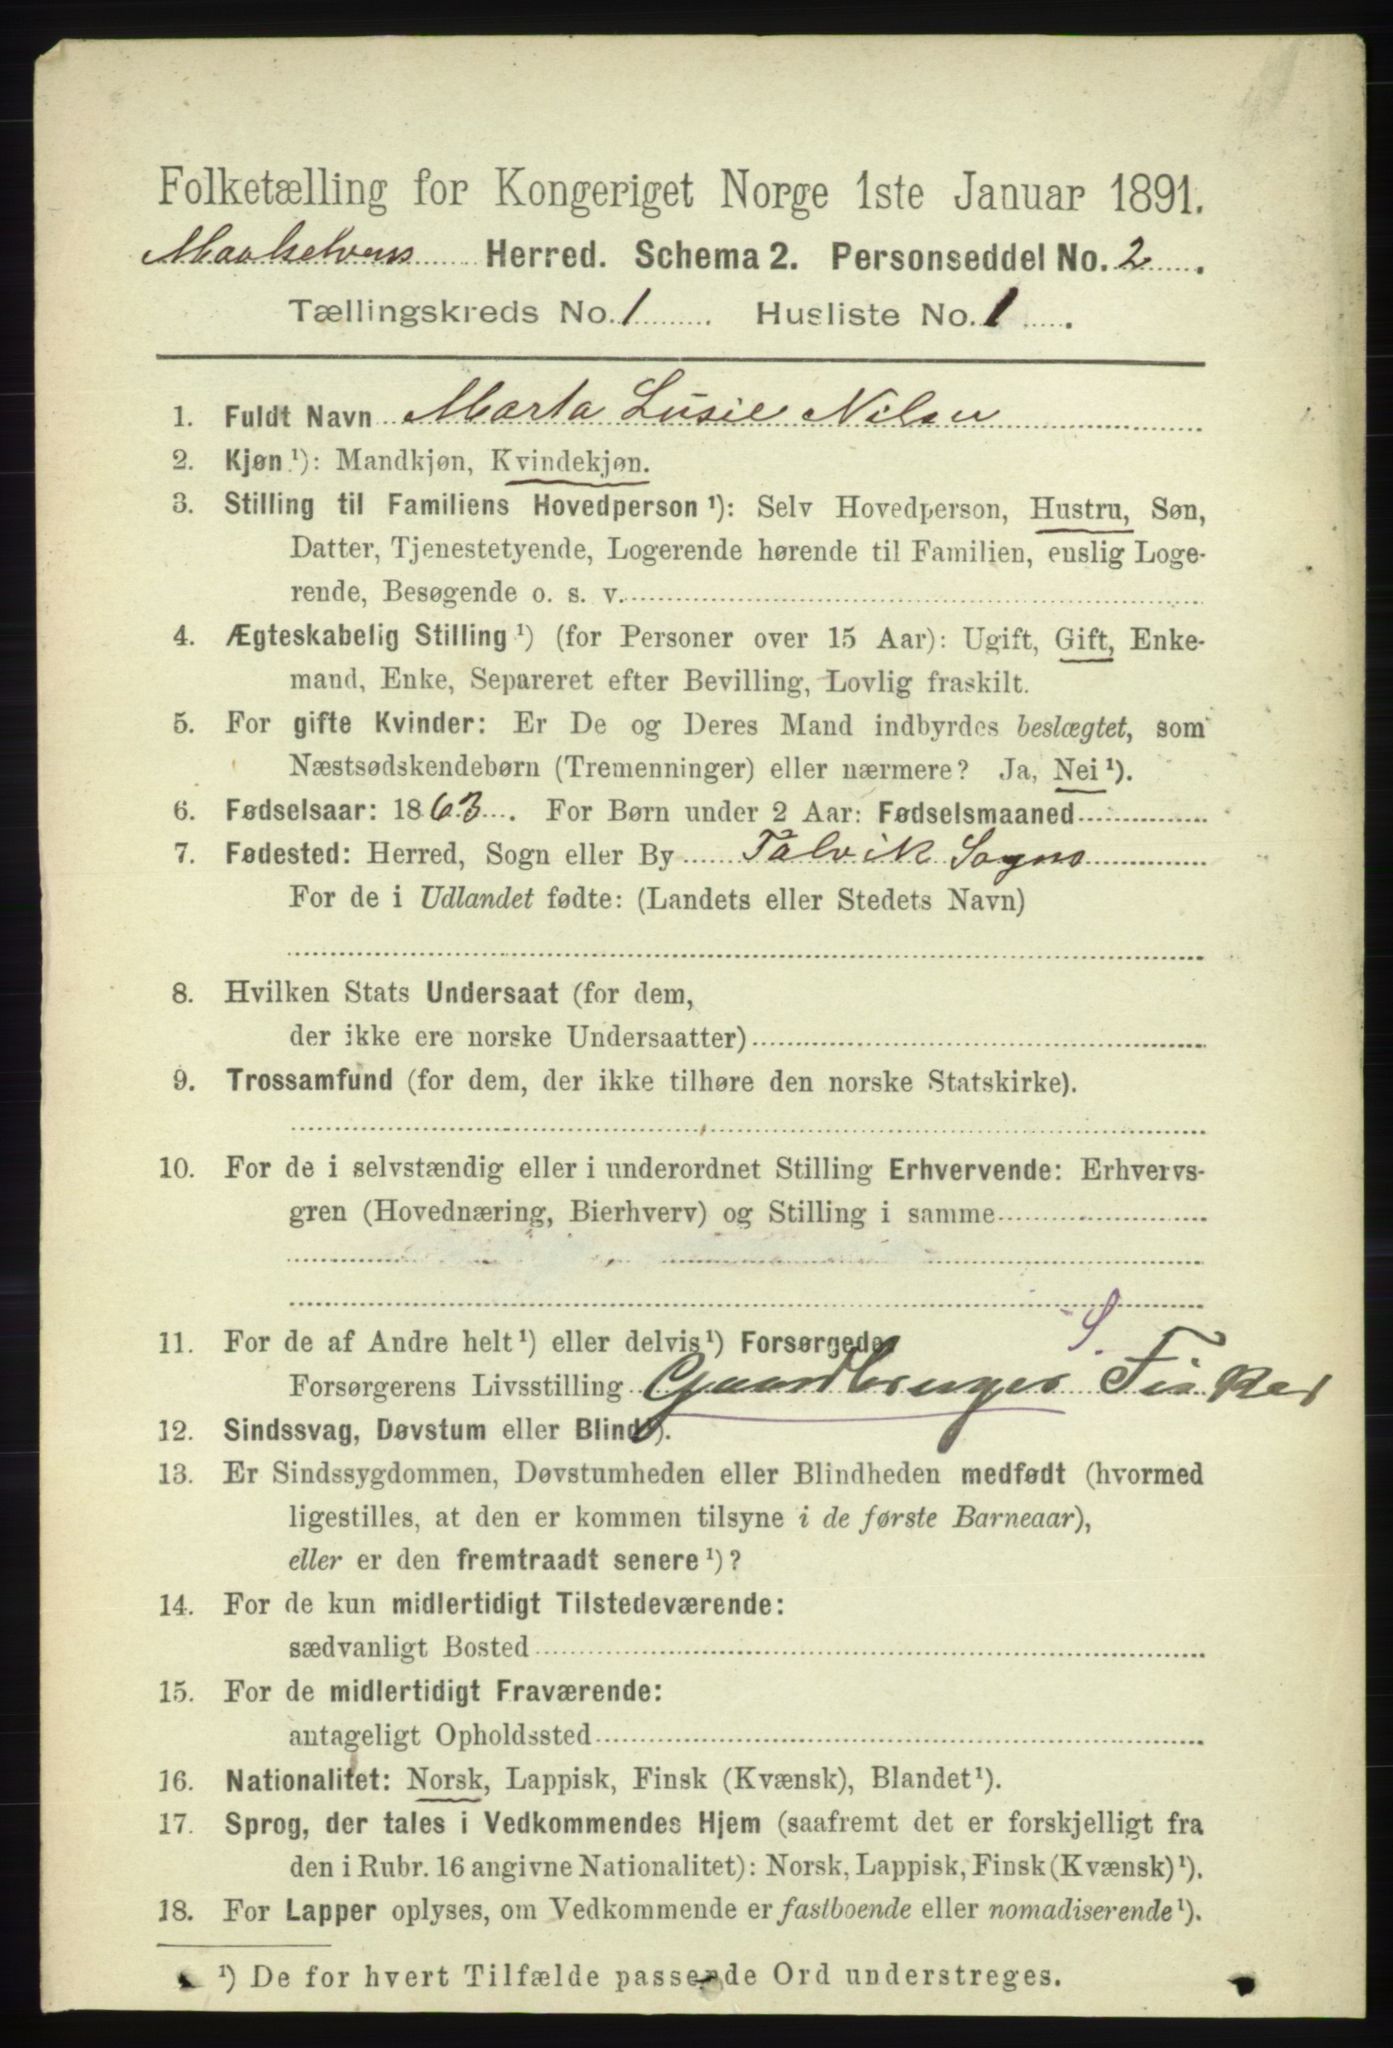 Folketælling for Kongeriget Norge 1ste Januar 1891.
Maalselvens Herred. Schema 2. Personseddel No. 2.
Tællingskreds No. 1. Husliste No. 1.
1. Fuldt Navn Marta Lusie Nilsen
2. Kjøn ¹): Mandkjøn, Kvindekjøn.
3. Stilling til Familiens Hovedperson ¹): Selv Hovedperson, Hustru, Søn,
Datter, Tjenestetyende, Logerende hørende til Familien, enslig Loge-
rende, Besøgende o. s. v.
4. Ægteskabelig Stilling ¹) (for Personer over 15 Aar): Ugift, Gift, Enke-
mand, Enke, Separeret efter Bevilling, Lovlig fraskilt.
5. For gifte Kvinder: Er De og Deres Mand indbyrdes beslægtet, som
Næstsødskendebørn (Tremenninger) eller nærmere? Ja, Nei ¹).
6. Fødselsaar: 1863. For Børn under 2 Aar: Fødselsmaaned
7. Fødested: Herred, Sogn eller By Talvik Sogns
For de i Udlandet fødte: (Landets eller Stedets Navn)
8. Hvilken Stats Undersaat (for dem,
der ikke ere norske Undersaatter)
9. Trossamfund (for dem, der ikke tilhøre den norske Statskirke).
10. For de i selvstændig eller i underordnet Stilling Erhvervende: Erhvervs-
gren (Hovednæring, Bierhverv) og Stilling i samme
S.
11. For de af Andre helt ¹) eller delvis ¹) Forsørgede
Forsørgerens Livsstilling Gaardbruger Fisker
12. Sindssvag, Døvstum eller Blind ¹).
13. Er Sindssygdommen, Døvstumheden eller Blindheden medfødt (hvormed
ligestilles, at den er kommen tilsyne i de første Barneaar),
eller er den fremtraadt senere ¹)?
14. For de kun midlertidigt Tilstedeværende:
sædvanligt Bosted
15. For de midlertidigt Fraværende:
antageligt Opholdssted
16. Nationalitet: Norsk, Lappisk, Finsk (Kvænsk), Blandet ¹).
17. Sprog, der tales i Vedkommendes Hjem (saafremt det er forskjelligt fra
den i Rubr. 16 angivne Nationalitet): Norsk, Lappisk, Finsk (Kvænsk) ¹).
18. For Lapper oplyses, om Vedkommende er fastboende eller nomadiserende ¹).
¹) De for hvert Tilfælde passende Ord understreges.